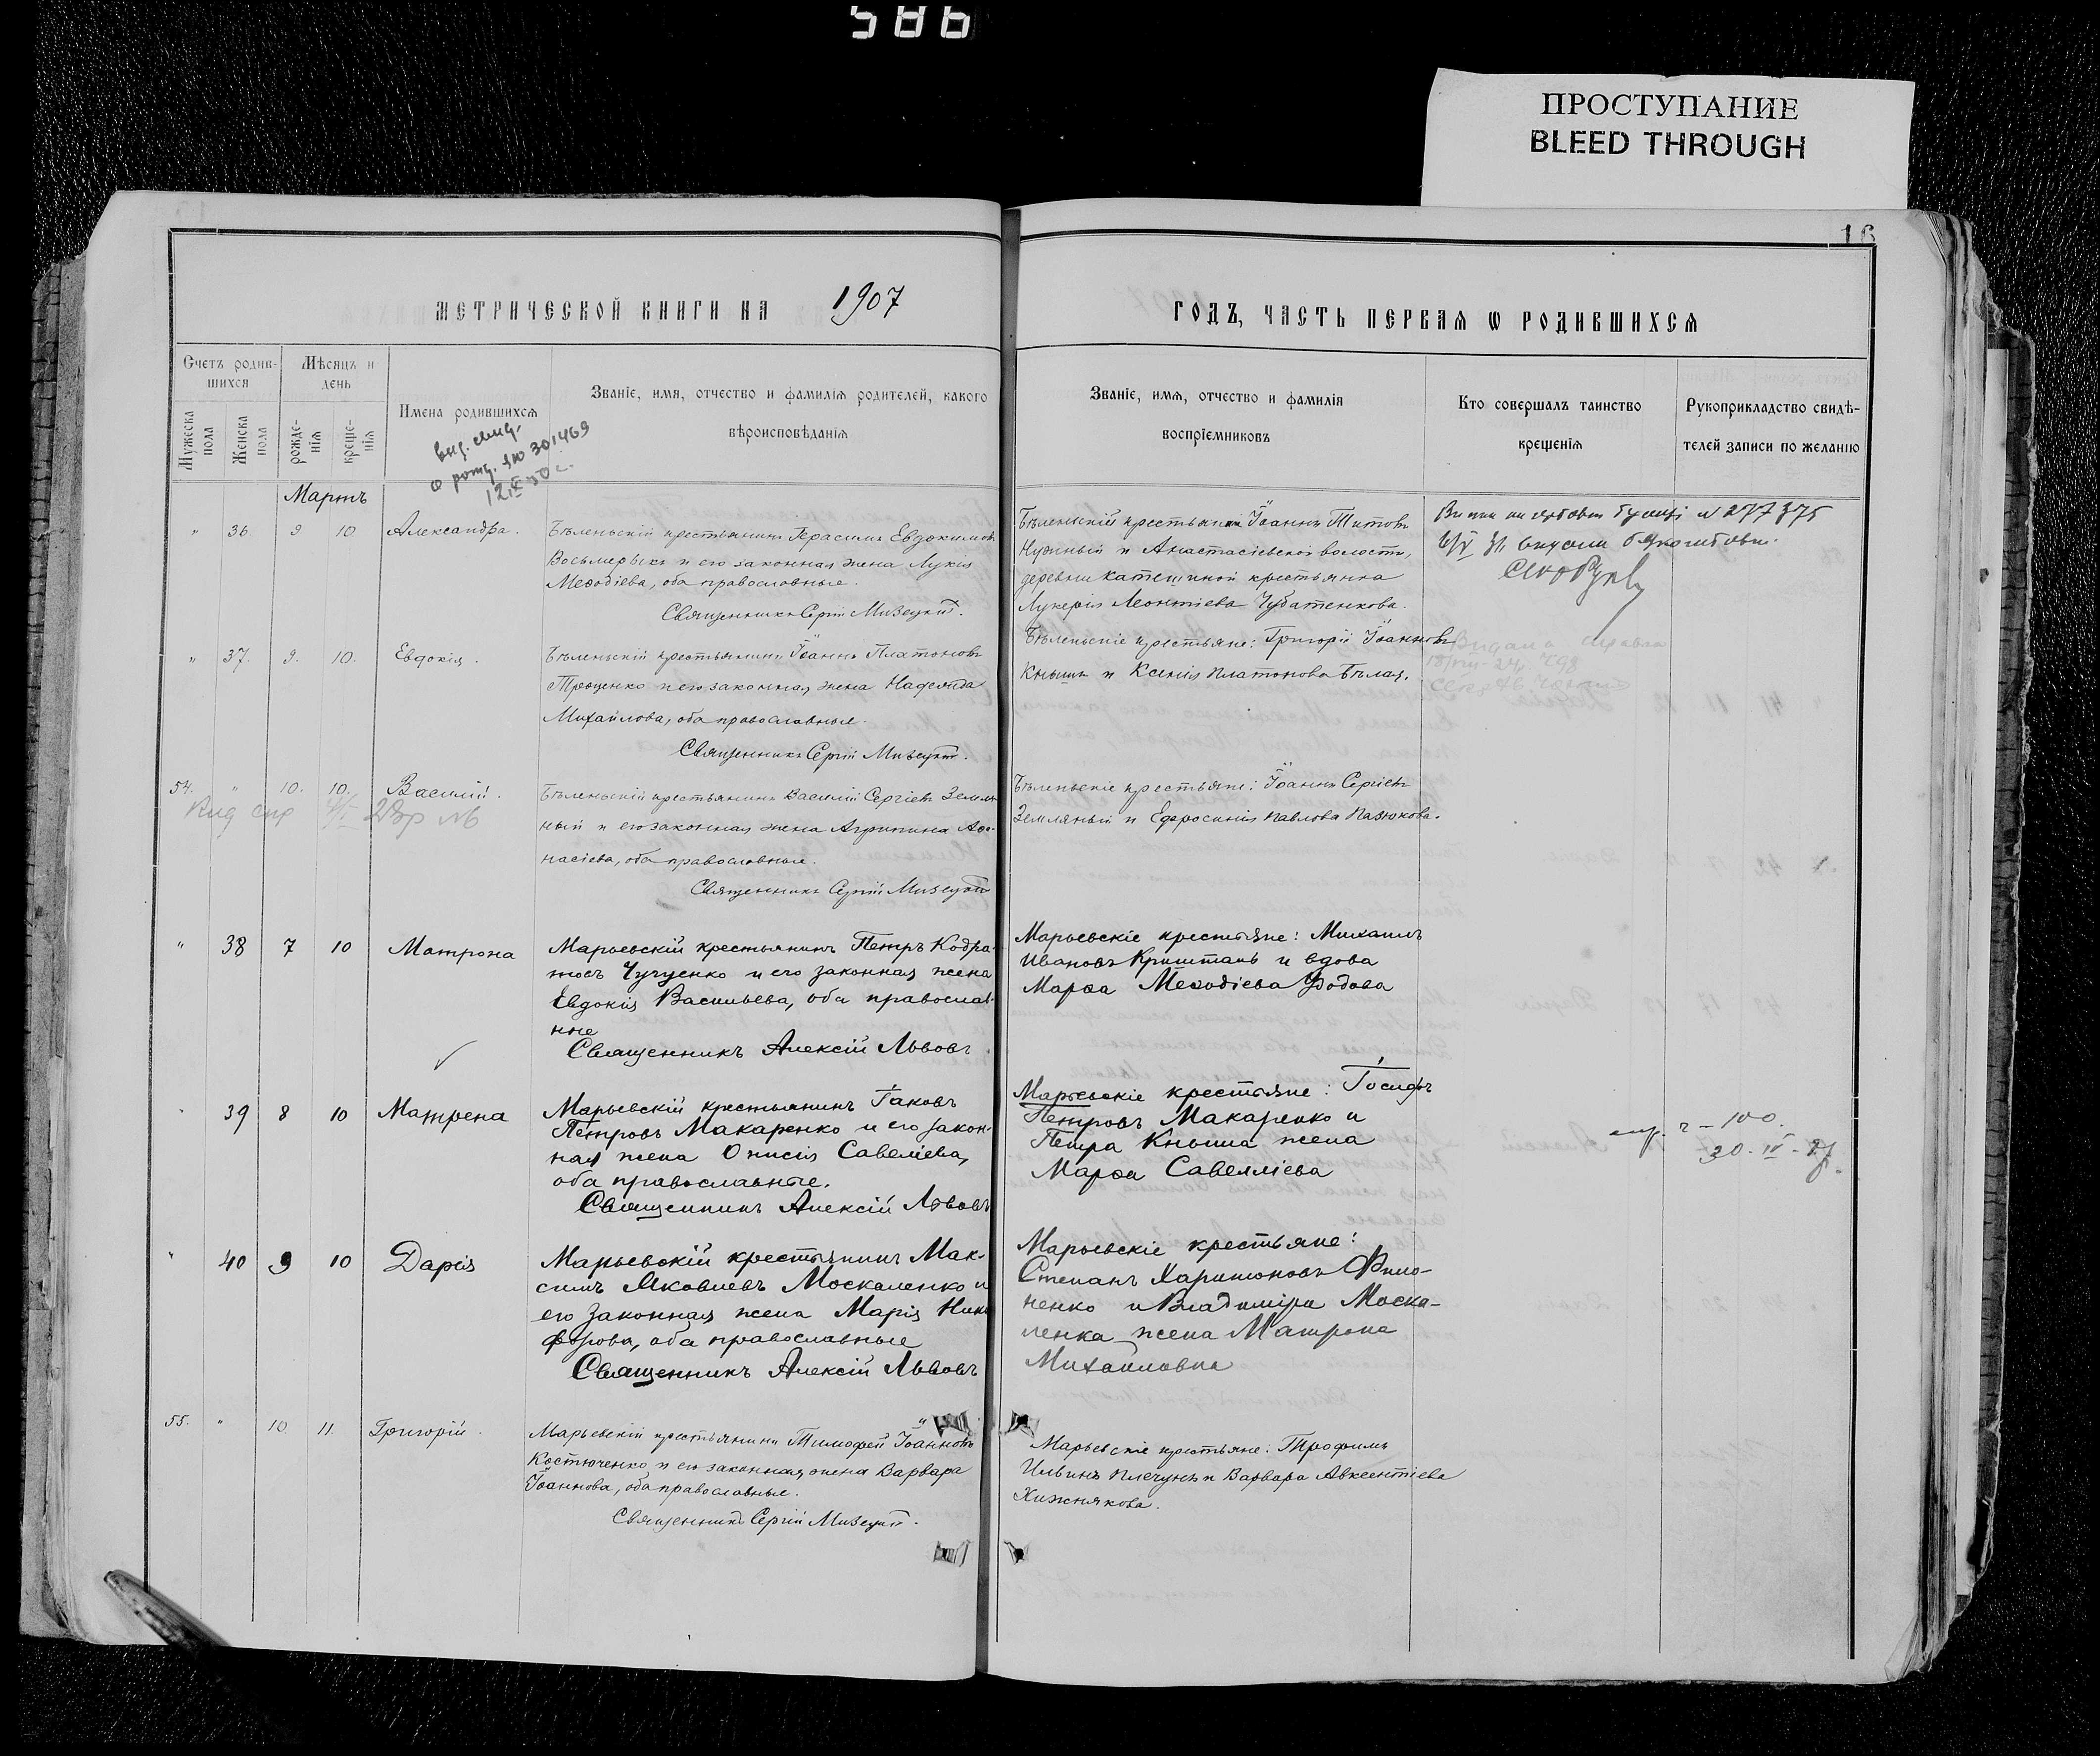 586
ПРОСТУПАНИЕ
BLEED THROUGH
16
МЕТРИЧЕСКОЙ КНИГИ НА 1907
ГОДЪ, ЧАСТЬ ПЕРВАЯ Ѡ РОДИВШИХСЯ
Счетъ родив-
шихся
Мѣсяцъ и
день
Мужеска
пола
Женска
пола
рожде-
нія
креще-
нія
Имена родившихся
Званіе, имя, отчество и фамилія родителей, какого
вѣроисповѣданія
Званіе, имя, отчество и фамилія
воспріемниковъ
Кто совершалъ таинство
крещенія
Рукоприкладство свидѣ-
телей записи по желанію
вид. свид.
о рожд. 301469
Мартъ
" 36 9 10 Александра.
Бѣленьскій крестьянинъ Герасимъ Евдокимовъ
и его законная жена Лукія
Меѳодіева, оба православные.
Священникъ Сергій Мизецкій.
Бѣленьскій крестьянинъ Іоаннъ Титовъ
Нужный и Анастасіевской волости,
деревни Катещиной крестьянка
Лукерія Леонтіева Чубатенкова.
№ 277375
" 37. 9. 10. Евдокія.
Бѣленьскій крестьянинъ Іоаннъ Платоновъ
Троценко и его законная жена Надежда
Михайлова, оба православные.
Священникъ Сергій Мизецкій.
Бѣленьскіе крестьяне: Григорій Іоанновъ
Кнышъ и Ксенія Платонова Бѣлая.
54. " 10. 10. Василій.
Бѣленьскій крестьянинъ Василій Сергіевъ Земля-
ный и его законная жена Агрипина Аѳа-
насіева, оба православные.
Священникъ Сергій Мизецкій
Бѣленьскіе крестьяне: Іоаннъ Сергіевъ
Земляный и Ефросинія Павлова Пазюкова.
" 38 7 10 Матрона
Марьевскій крестьянинъ Петръ Кодра-
товъ Чугуенко и его законная жена
Евдокія Васильева, оба православ-
ные
Священникъ Алексій Львовъ
Марьевскіе крестьяне: Михаилъ
Ивановъ Криштапь и вдова
Марѳа Меѳодіева
" 39 8 10 Матрена
Марьевскій крестьянинъ Іаковъ
Петровъ Макаренко и его закон-
ная жена Онисія Савеліева,
оба православные.
Священникъ Алексій Львовъ
Марьевскіе крестьяне: Іосифъ
Петровъ Макаренко и
Петра Кныша жена
Марѳа Савелліева
100.
" 40 9 10 Дарія
Марьевскій крестьянинъ Мак-
симъ Яковлевъ Москаленко и
его законная жена Марія Ники
форова, оба православные
Священникъ Алексій Львовъ
Марьевскіе крестьяне:
Степанъ Харитоновъ Фило-
ненко и Владиміра Моска-
ленка жена Матрона
Михаиловна
55. " 10 11. Григорій.
Марьевскій крестьянинъ Тимофей Іоанновъ
Костюченко и его законная жена Варвара
Іоаннова, оба православные.
Священникъ Сергій Мизецкій.
Марьевскіе крестьяне: Трофимъ
Ильинъ Плечунъ и Варвара Авксентіева
Хижнякова.